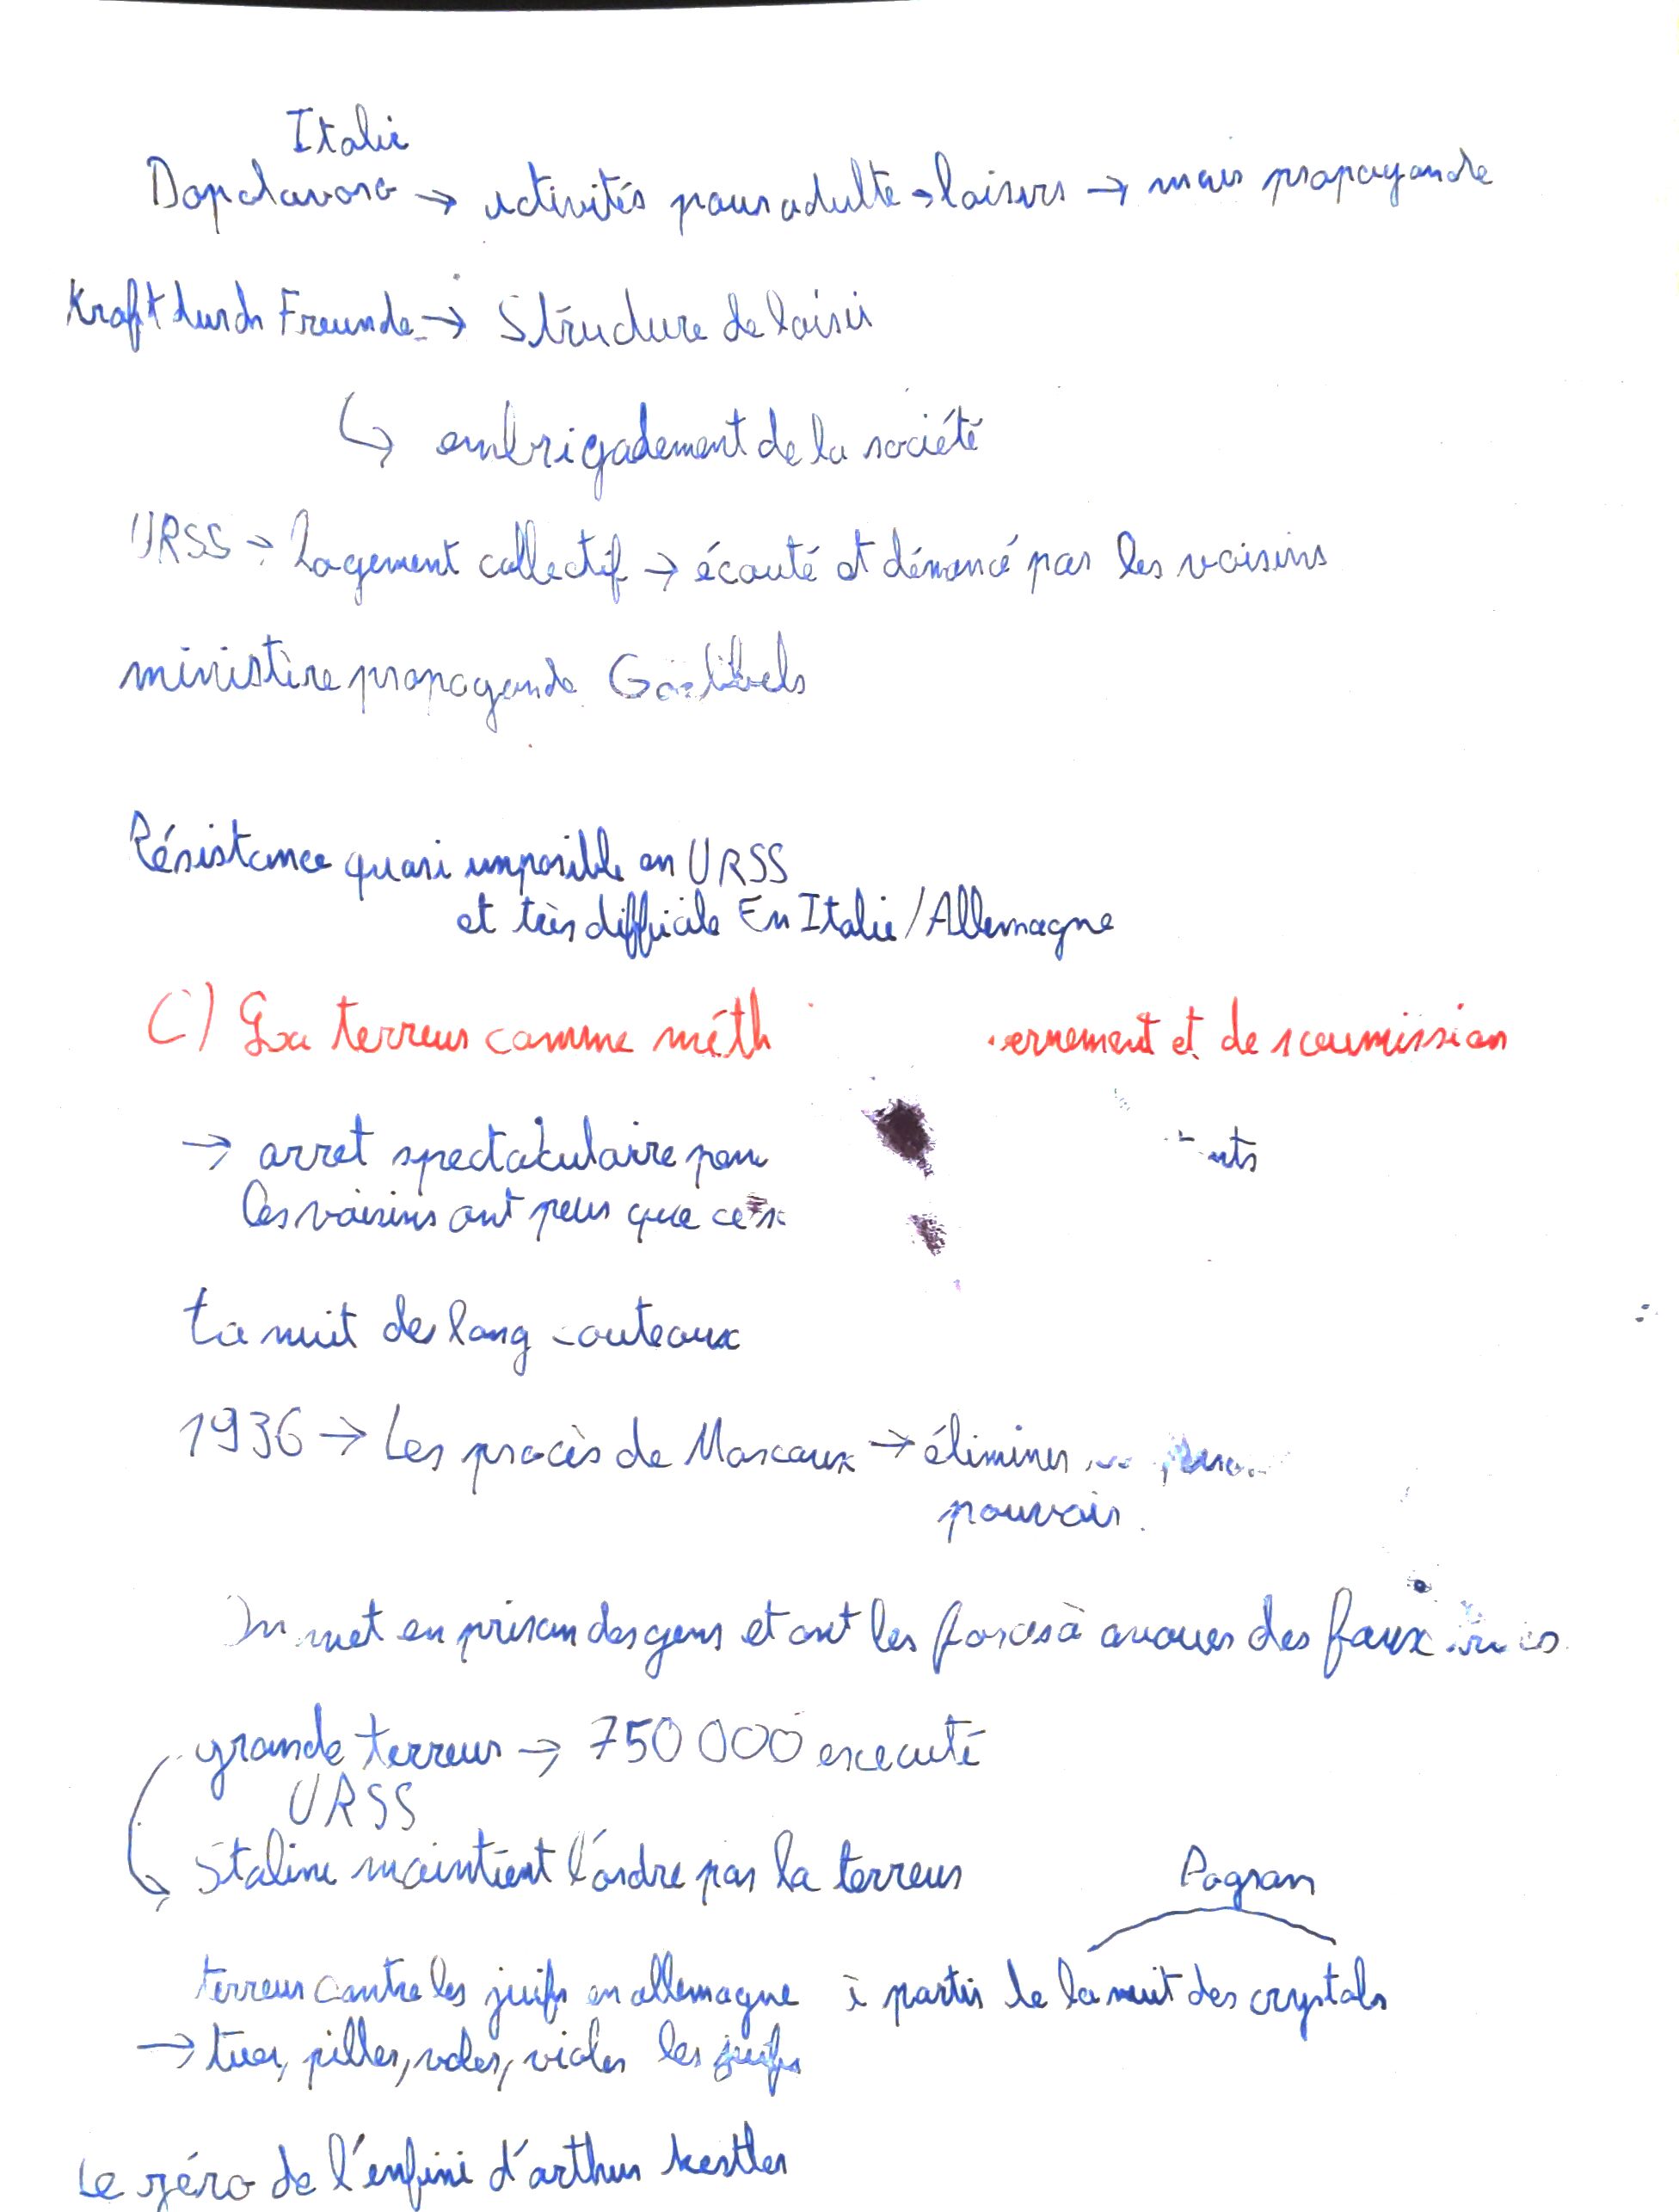 Italie
Dopolavoro → activités pour adulte → loisirs → mais propagande
Kraft durch Freunde → Structure de loisir
↳ embrigadement de la société
URSS → Logement collectif → écouté et dénoncé par les voisins
ministère propagande
Résistance quasi imposible en URSS
et très difficile En Italie/Allemagne
C) La terreur comme méth ernement et de soumission
→ arret spectaculaire pour nts
les voisins ont peur que
La nuit des long couteaux
1936 → Les procès de Moscoux → éliminer
pouvoir.
On met en prison des gens et ont les forces à avouer des faux
grande terreur → 750 000 executé
URSS
Staline maintient l'ordre par la terreur
Pogrom
terreur contre les juifs en allemagne à partir de la nuit des crystals
→ tuer, piller, voler, violer les juifs
Le zéro de l'enfini d'arthur kestler